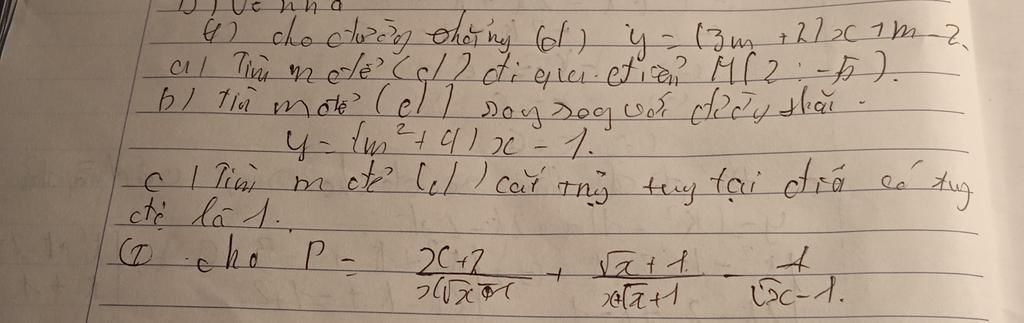 4) cho đường thẳng (d) y = (3m + 2)x + m - 2.
a) Tìm m để (d) đi qua điểm M(2; -5).
b) Tìm m để (d) song song với đường thẳng
y = (m² + 4)x - 1.
c) Tìm m để (d) cắt trục tung tại điểm có tung
độ là 1.
cho P = x+2 / x√x - 1 + √x + 1 / x+√x+1 - 1 / √x - 1.